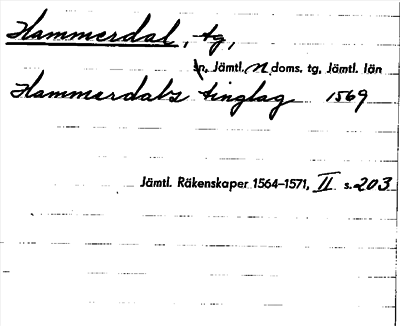 Hammerdal, tg,
sn, Jämtl. N doms. tg, Jämtl. län
Hammerdals tinglag 1569
Jämtl. Räkenskaper 1564–1571, II s. 203